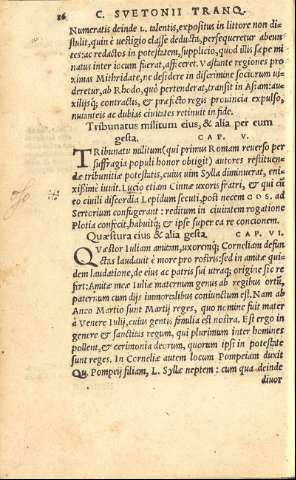 26 C. SVETONII TRANQ.
Numeratis deinde L. talentis, expositus in littore non di-
stulit, quin è uestigio classe deducta, persequeretur abeun
tes: ac redactos in potestatem, supplicio, quod illis sæpe mi
natus inter iocum fuerat, afficeret. Vastante regiones pro
ximas Mithridate, ne desidere in discrimine sociorum ui-
deretur, ab Rhodo, quò pertenderat, transijt in Asiam: au-
xilijsq; contractis, & præfecto regis prouincia expulso,
nutanteis ac dubias ciuitates retinuit in fide.
Tribunatus militum eius, & alia per eum
gesta. CAP. V.
TRibunatu militum (qui primus Romam reuerso per
suffragia populi honor obtigit) autores restituen-
dæ tribunitiæ potestatis, cuius uim Sylla diminuerat, eni-
xissimè iuuit. Lucio etiam Cinnæ uxoris fratri, & qui cū
eo ciuili discordia Lepidum secuti, post necem COS. ad
Sertorium confugerant: reditum in ciuitatem rogatione
Plotia confecit, habuitq; & ipse super ea re concionem.
Quæstura eius & alia gesta. CAP. VI.
QVæstor Iuliam amitam, uxoremq; Corneliam defun
ctas laudauit è more pro rostris: sed in amitæ qui-
dem laudatione, de eius ac patris sui utraq; origine sic re
fert: Amitæ meæ Iuliæ maternum genus ab regibus ortū,
paternum cum dijs immortalibus coniunctum est. Nam ab
Anco Martio sunt Martij reges, quo nomine fuit mater
à Venere Iulij, cuius gentis familia est nostra. Est ergo in
genere & sanctitas regum, qui plurimum inter homines
pollent, & cerimonia deorum, quorum ipsi in potestate
sunt reges. In Corneliæ autem locum Pompeiam duxit
Qu. Pompeij filiam, L. Syllæ neptem: cum qua deinde
diuor